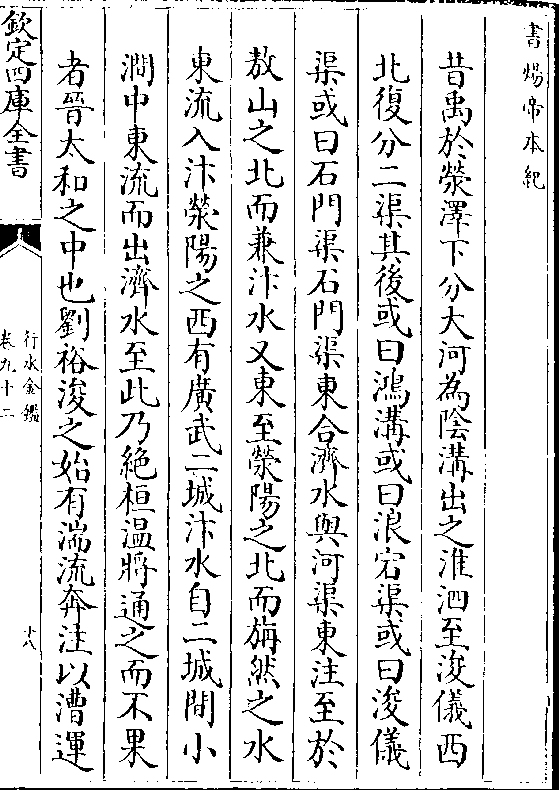 書煬帝本紀
昔禹於滎澤下分大河為陰溝出之淮泗至浚儀西
北復分二渠其後或曰鴻溝或曰浪宕渠或曰浚儀
渠或曰石門渠石門渠東合濟水與河渠東注至於
敖山之北而兼汴水又東至滎陽之北而旃然之水
東流入汴滎陽之西有廣武二城汴水自二城間小
澗中東流而出濟水至此乃絶桓温將通之而不果
者晉太和之中也劉裕浚之始有湍流奔注以漕運
欽定四庫全書
行水金鑑
卷九十二
十八